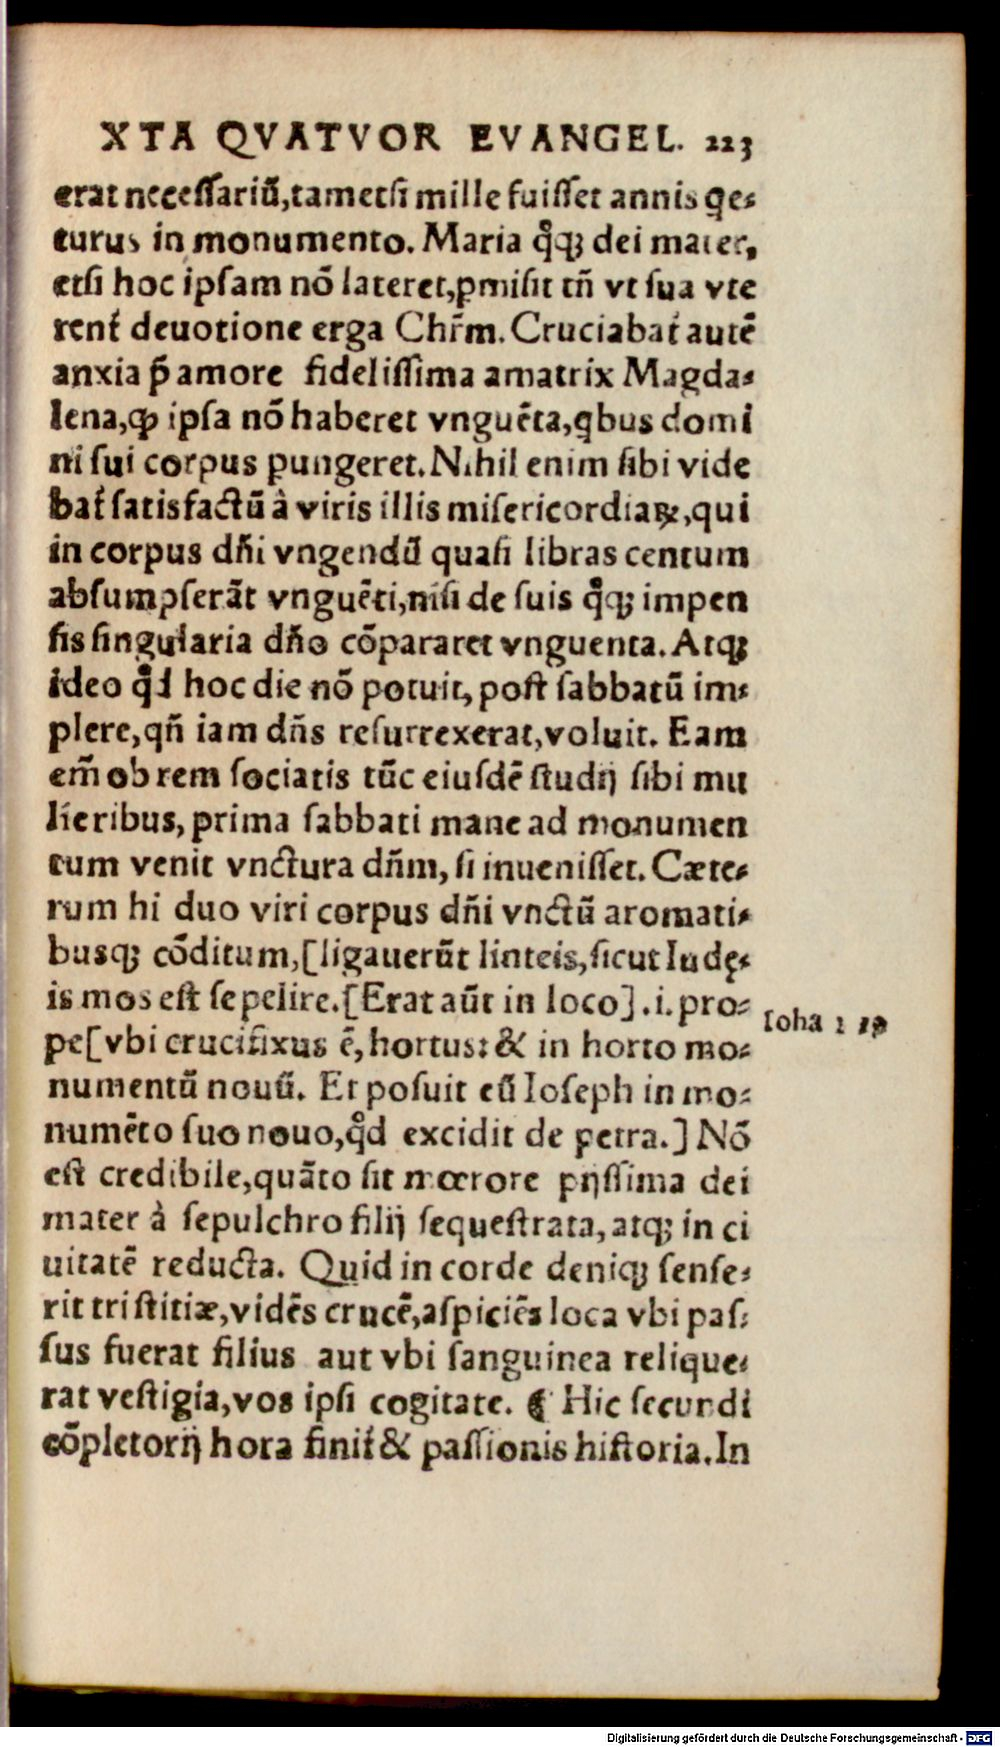 XTA QVATVOR EVANGEL. 223
erat necessariũ,tametsi mille fuisset annis qe⸗
turus in monumento. Maria qͦqꝫ dei mater,
etsi hoc ipsam nō lateret,ꝑmisit tñ vt sua vte
rent᷑ deuotione erga Chr̃m. Cruciabat᷑ autē
anxia p̃ amore fidelissima amatrix Magda⸗
lena,ꝙ ipsa nō haberet vnguēta,qbus domi
ni sui corpus pungeret. Nihil enim sibi vide
bat᷑ satisfactũ à viris illis misericordiaꝝ,qui
in corpus dñi vngendũ quasi libras centum
absumpserãt vnguēti,nisi de suis qͦqꝫ impen
sis singularia dño cōpararet vnguenta. Atqꝫ
ideo qͦd hoc die nō potuit, post sabbatũ im⸗
plere,qñ iam dñs resurrexerat,voluit. Eam
em̃ ob rem sociatis tũc eiusdē studij sibi mu
lieribus, prima sabbati mane ad monumen
tum venit vnctura dñm, si inuenisset. Cæte⸗
rum hi duo viri corpus dñi vnctũ aromati⸗
busqꝫ cōditum,[ligauerũt linteis,sicut Iudę⸗
is mos est sepelire.[Erat aũt in loco].i. pro⸗
pe[vbi crucifixus ē, hortus: & in horto mo⸗
numentũ nouũ. Et posuit eũ Ioseph in mo⸗
numēto suo nouo,qͦd excidit de petra.] Nō
est credibile,quãto sit mœrore pijssima dei
mater à sepulchro filij sequestrata, atqꝫ in ci
uitatē reducta. Quid in corde deniqꝫ sense⸗
rit tristitiæ,vidēs crucē,aspiciēs loca vbi pas⸗
sus fuerat filius aut vbi sanguinea relique⸗
rat vestigia,vos ipsi cogitate. ¶ Hic secundi
cōpletorij hora finit᷑ & passionis historia. In
Ioha 1 19
Digitalisierung gefördert durch die Deutsche Forschungsgemeinschaft - DFG